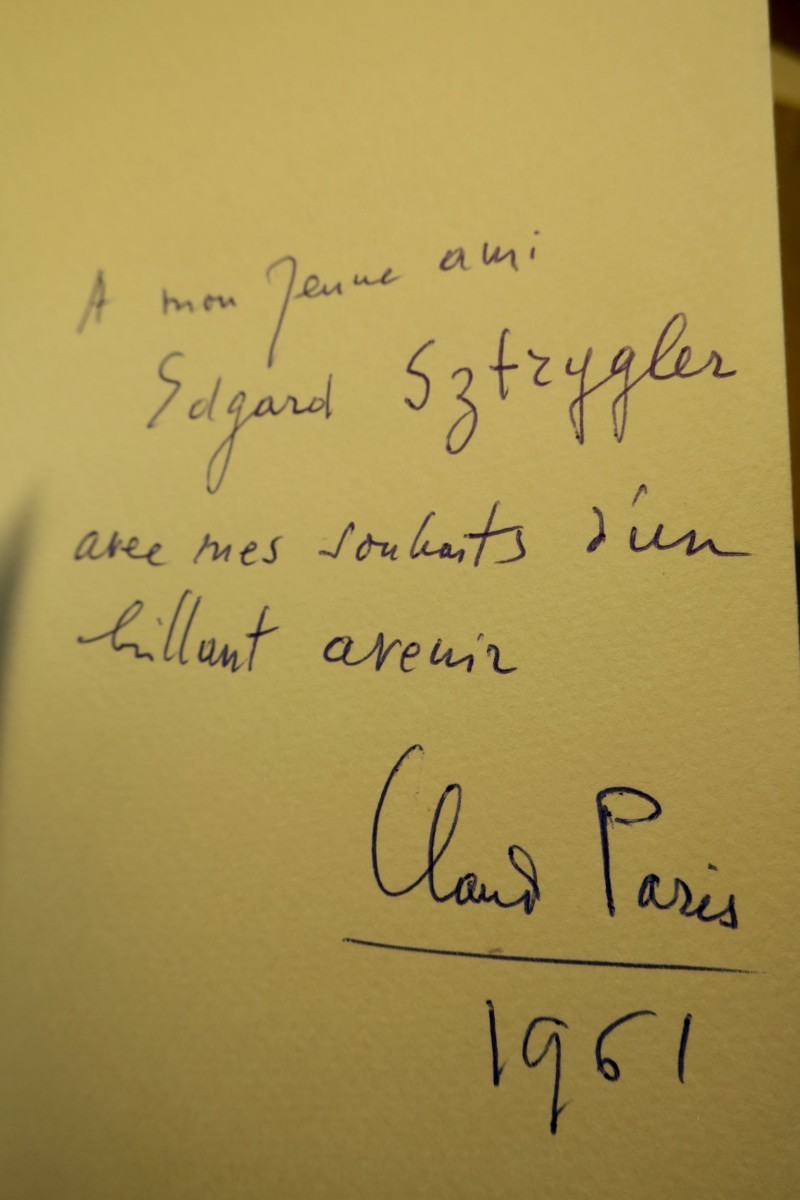 A mon jeune ami
Edgard Sztrygler
avec mes souhaits d'un
brillant avenir
Claud Paris
1961